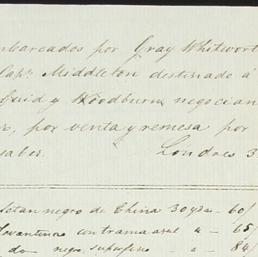 mbarcados por Gray Whitwort
Capn Middleton destinado á
Guid y Woodburn negocian
, por venta y remesa por
saber. Londres 3
fetan negro de China 30 yds - 60/
Levantines con trama azul " - 65/
do negro superfino " - 84/